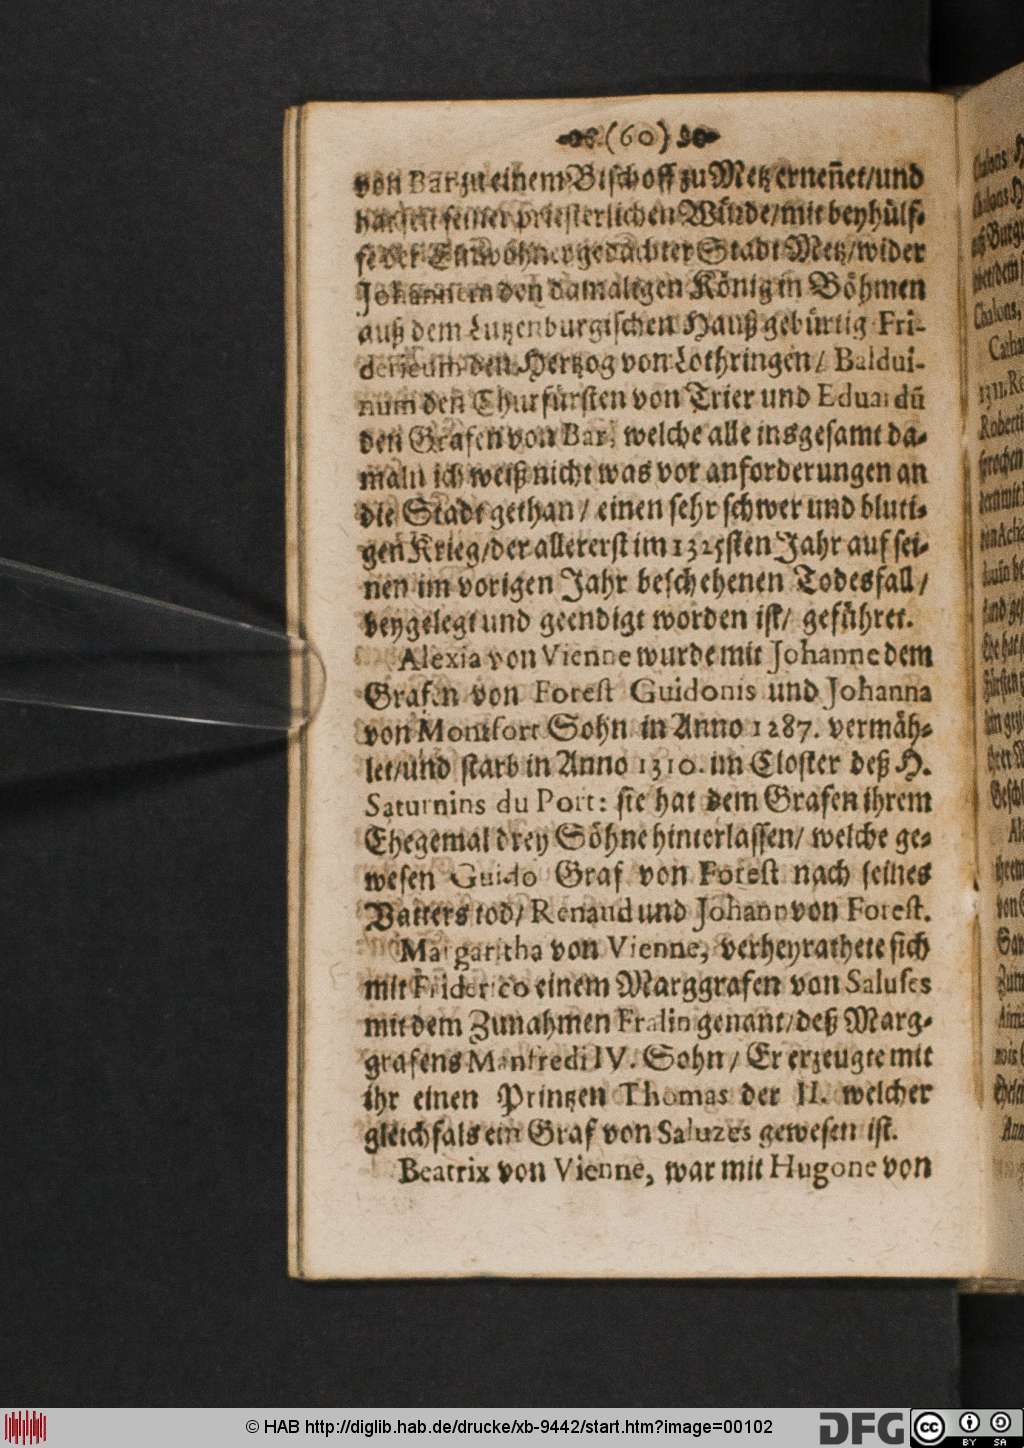 (60)
von Bar zu einem Bischoff zu Metz erneñet/und
hat seit seiner priesterlichen Würde/mit beyhülf-
fe der Einwohner gedachter Stadt Metz/wider
Johannem den damaligen König in Böhmen
auß dem Lutzenburgischen Hauß gebürtig Fri-
dericum den Hertzog von Lothringen/ Baldui-
num den Churfürsten von Trier und Eduardū
den Grafen von Bar, welche alle insgesamt da-
maln ich weiß nicht was vor anforderungen an
die Stadt gethan/ einen sehr schwer und bluti-
gen Krieg/der allererst im 1325sten Jahr auf sei-
nen im vorigen Jahr beschehenen Todesfall/
beygelegt und geendigt worden ist/ geführet.
Alexia von Vienne wurde mit Johanne dem
Grafen von Forest Guidonis und Johanna
von Montfort Sohn in Anno 1287. vermäh-
let/und starb in Anno 1310. im Closter deß H.
Saturnins du Port: sie hat dem Grafen ihrem
Ehegemal drey Söhne hinterlassen/ welche ge-
wesen Guido Graf von Forest nach seines
Vatters tod/ Renaud und Johann von Forest.
Margaritha von Vienne, verheyrathete sich
mit Friderico einem Marggrafen von Saluses
mit dem Zunahmen Fralin genant/deß Marg-
grafens Manfredi IV. Sohn/ Er erzeugte mit
ihr einen Printzen Thomas der II. welcher
gleichfals ein Graf von Saluzes gewesen ist.
Beatrix von Vienne, war mit Hugone von
© HAB http://diglib.hab.de/drucke/xb-9442/start.htm?image=00102
DFG
cc
BY SA